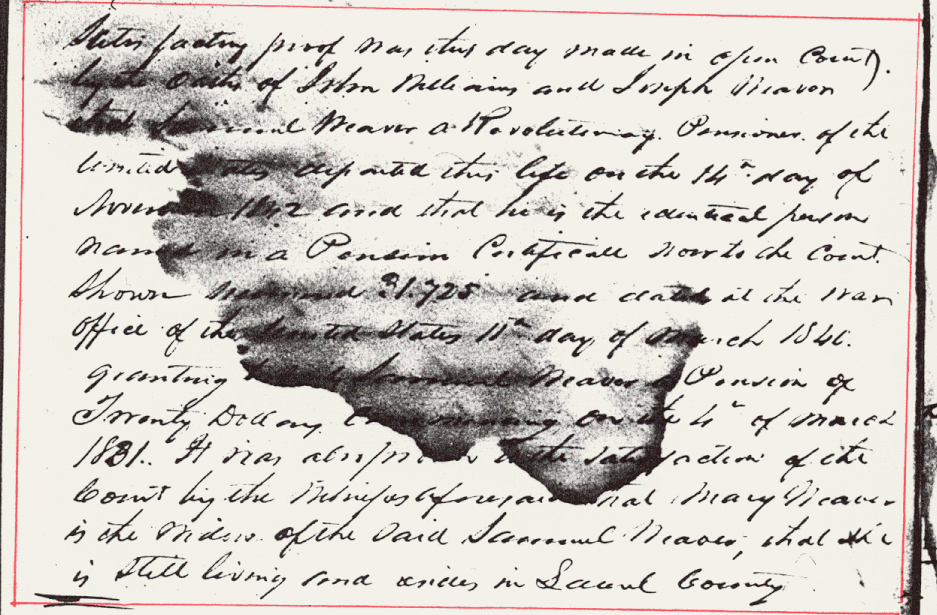 Satisfactory proof was this day made in open Court
by the oaths of John Williams and Joseph Weaver
that Samuel Weaver a Revolutionary Pensioner of the
United States departed this life on the 14th day of
November 1842 and that he is the identical person
named in a Pension Certificate now to the Court
Shown numbered 31.725 and dated at the War
office of the United States 11th day of March
granting Samuel Weaver a Pension of
Twenty Dollars commencing on the 4th of March
1831. It was also proven to the satisfaction of the
Court by the Witnesses aforesaid that Mary Weaver
is the Widow of the Said Sammuel Weaver, that she
is Still living and resides in Laurel County